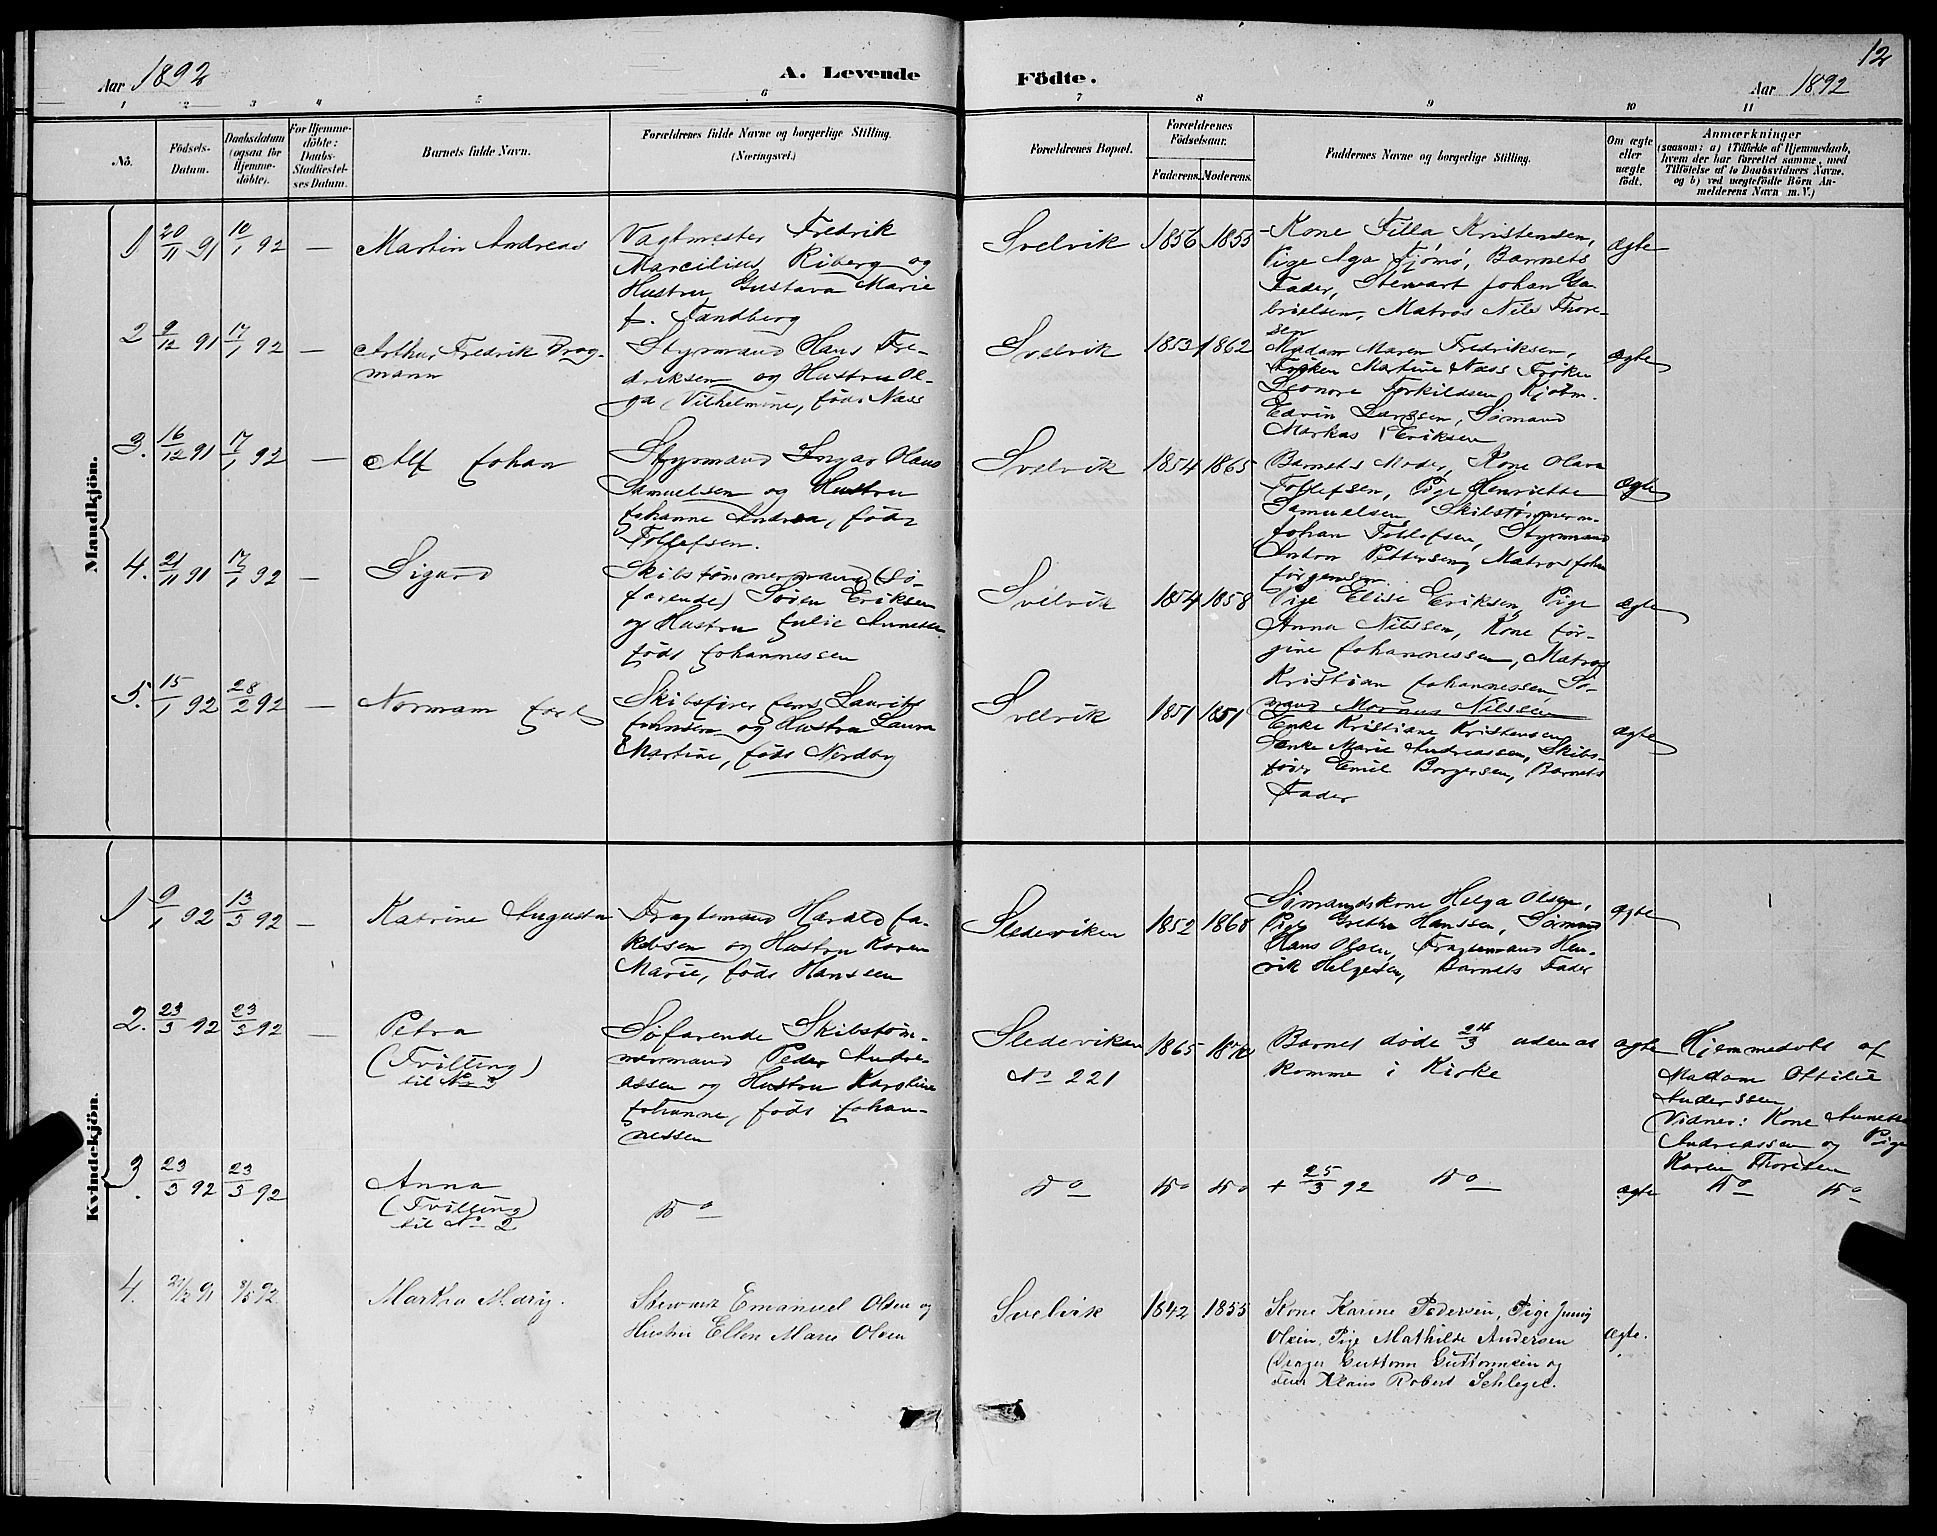 12
Aar 1892
A. Levende
Födte.
Aar 1892
1 2 3 4 5 6 7 8 9 10 11
No.
Födsels-
Datum.
Daabsdatum
(ogsaa for
Hjemme-
döbte).
For Hjemme-
döbte:
Daabs-
Stadfæstel-
ses Datum.
Barnets fulde Navn.
Forældrenes fulde Navne og borgerlige Stilling.
(Næringsvei.)
Forældrenes Bopæl.
Forældrenes
Födselsaar.
Faderens. Moderens.
Faddernes Navne og borgerlige Stilling.
Om ægte
eller
uægte
födt.
Anmærkninger
(saasom: a) i Tilfælde af Hjemmedaab,
hvem der har forrettet samme, med
Tilföielse af to Daabsvidners Navne,
og b) ved uægtefödte Börn An-
melderens Navn m. V.)
Mandkjön.
1 20/11 91 10/1 92 — Martin Andreas
Vagtmester Fredrik
Marcilius Riberg og
Hustru Gustava Marie
f. Sandberg
Svelvik 1856 1855
Kone Tilla Kristensen,
Pige Aga Tjömö, Barnets
Fader, Stewart Johan Ga-
brielsen, Matros Nils Thore-
sen
ægte
2 9/12 91 17/1 92 — Arthur Fredrik Drag-
mann
Styrmand Hans Fre-
driksen og Hustru Ol-
ga Vilhelmine, föds Næss
Svelvik 1853 1862
Madam Maren Fredriksen,
Fröken Martine Næss Fröken
Leonore Torkildsen Kjöbm.
Edvin Larssen, Sömand
Markus Eriksen
ægte
3. 16/12 91 17/1 92 — Alf Johan
Styrmand Ingar Olaus
Samuelsen og Hustru
Johanne Andrea, föds
Tollefsen.
Svelvik 1854 1865
Barnets Moder, Kone Olava
Tollefsen, Pige Henriette
Samuelsen Skibstömmerm.
Johan Tollefsen, Styrmand
Anton Pettersen, Matros Johan
Jörgensen.
ægte
4. 21/11 91 17/1 92 — Sigurd
Skibstömmermand (Sö-
farende) Sören Eriksen
og Hustru Julie Annette
föds Johannessen
Svelvik 1854 1858
Pige Elise Eriksen, Pige
Anna Nilssen, Kone Jör-
gine Johannessen, Matros
Kristian Johannessen, Sö-
mand Magnus Nilssen
ægte
5. 15/1 92 28/2 92 — Normann
Skibsförer Jens Lauritz
Johnsen og Hustru Laura
Martine, föds Nordby
Svelvik 1851 1851
Enke Kristiane Kristensen
Enke Marie Andreassen, Skibs-
förer Emil Borgersen, Barnets
Fader
ægte
Kvindekjön.
1 9/1 92 13/3 92 — Katrine Augusta
Fragtemand Harald Ja-
kobsen og Hustru Karen
Marie, föds Hanssen
Sledeviken 1852 1868
Sömandskone Helga Olsen,
Pige Grethe Hanssen, Sömand
Hans Olsen, Fragtemand Hen-
rik Helgesen, Barnets Fader
ægte
2. 23/3 92 23/3 92 — Petra
(Tvilling)
til No 3
Söfarende Skibstöm-
mermand Peder Andre-
assen og Hustru Karoline
Johanne, föds Johan-
nessen
Sledeviken
No 221
1865 1870
Barnet döde 24/3 uden at
komme i Kirke
ægte
Hjemmedöbt af
Madam Ottilie
Anderssen
Vidner: Kone Annette
Andreassen og Pige
Karen Thoresen
3. 23/3 92 23/3 92 Anna
(Tvilling)
til No 2
Do
Do Do Do + 25/3 92 Do
ægte Do Do
4. 21/12 91 8/5 92 Martha Mary.
Stewart Emanuel Olsen og
Hustru Ellen Marie Olsen
Svelvik 1842 1855
Kone Karine Pedersen, Pige Jenny
Olsen, Pige Mathilde Andersen
Drager Guttorm Guttormsen og
Klaus Robert Schlegel.
ægte.